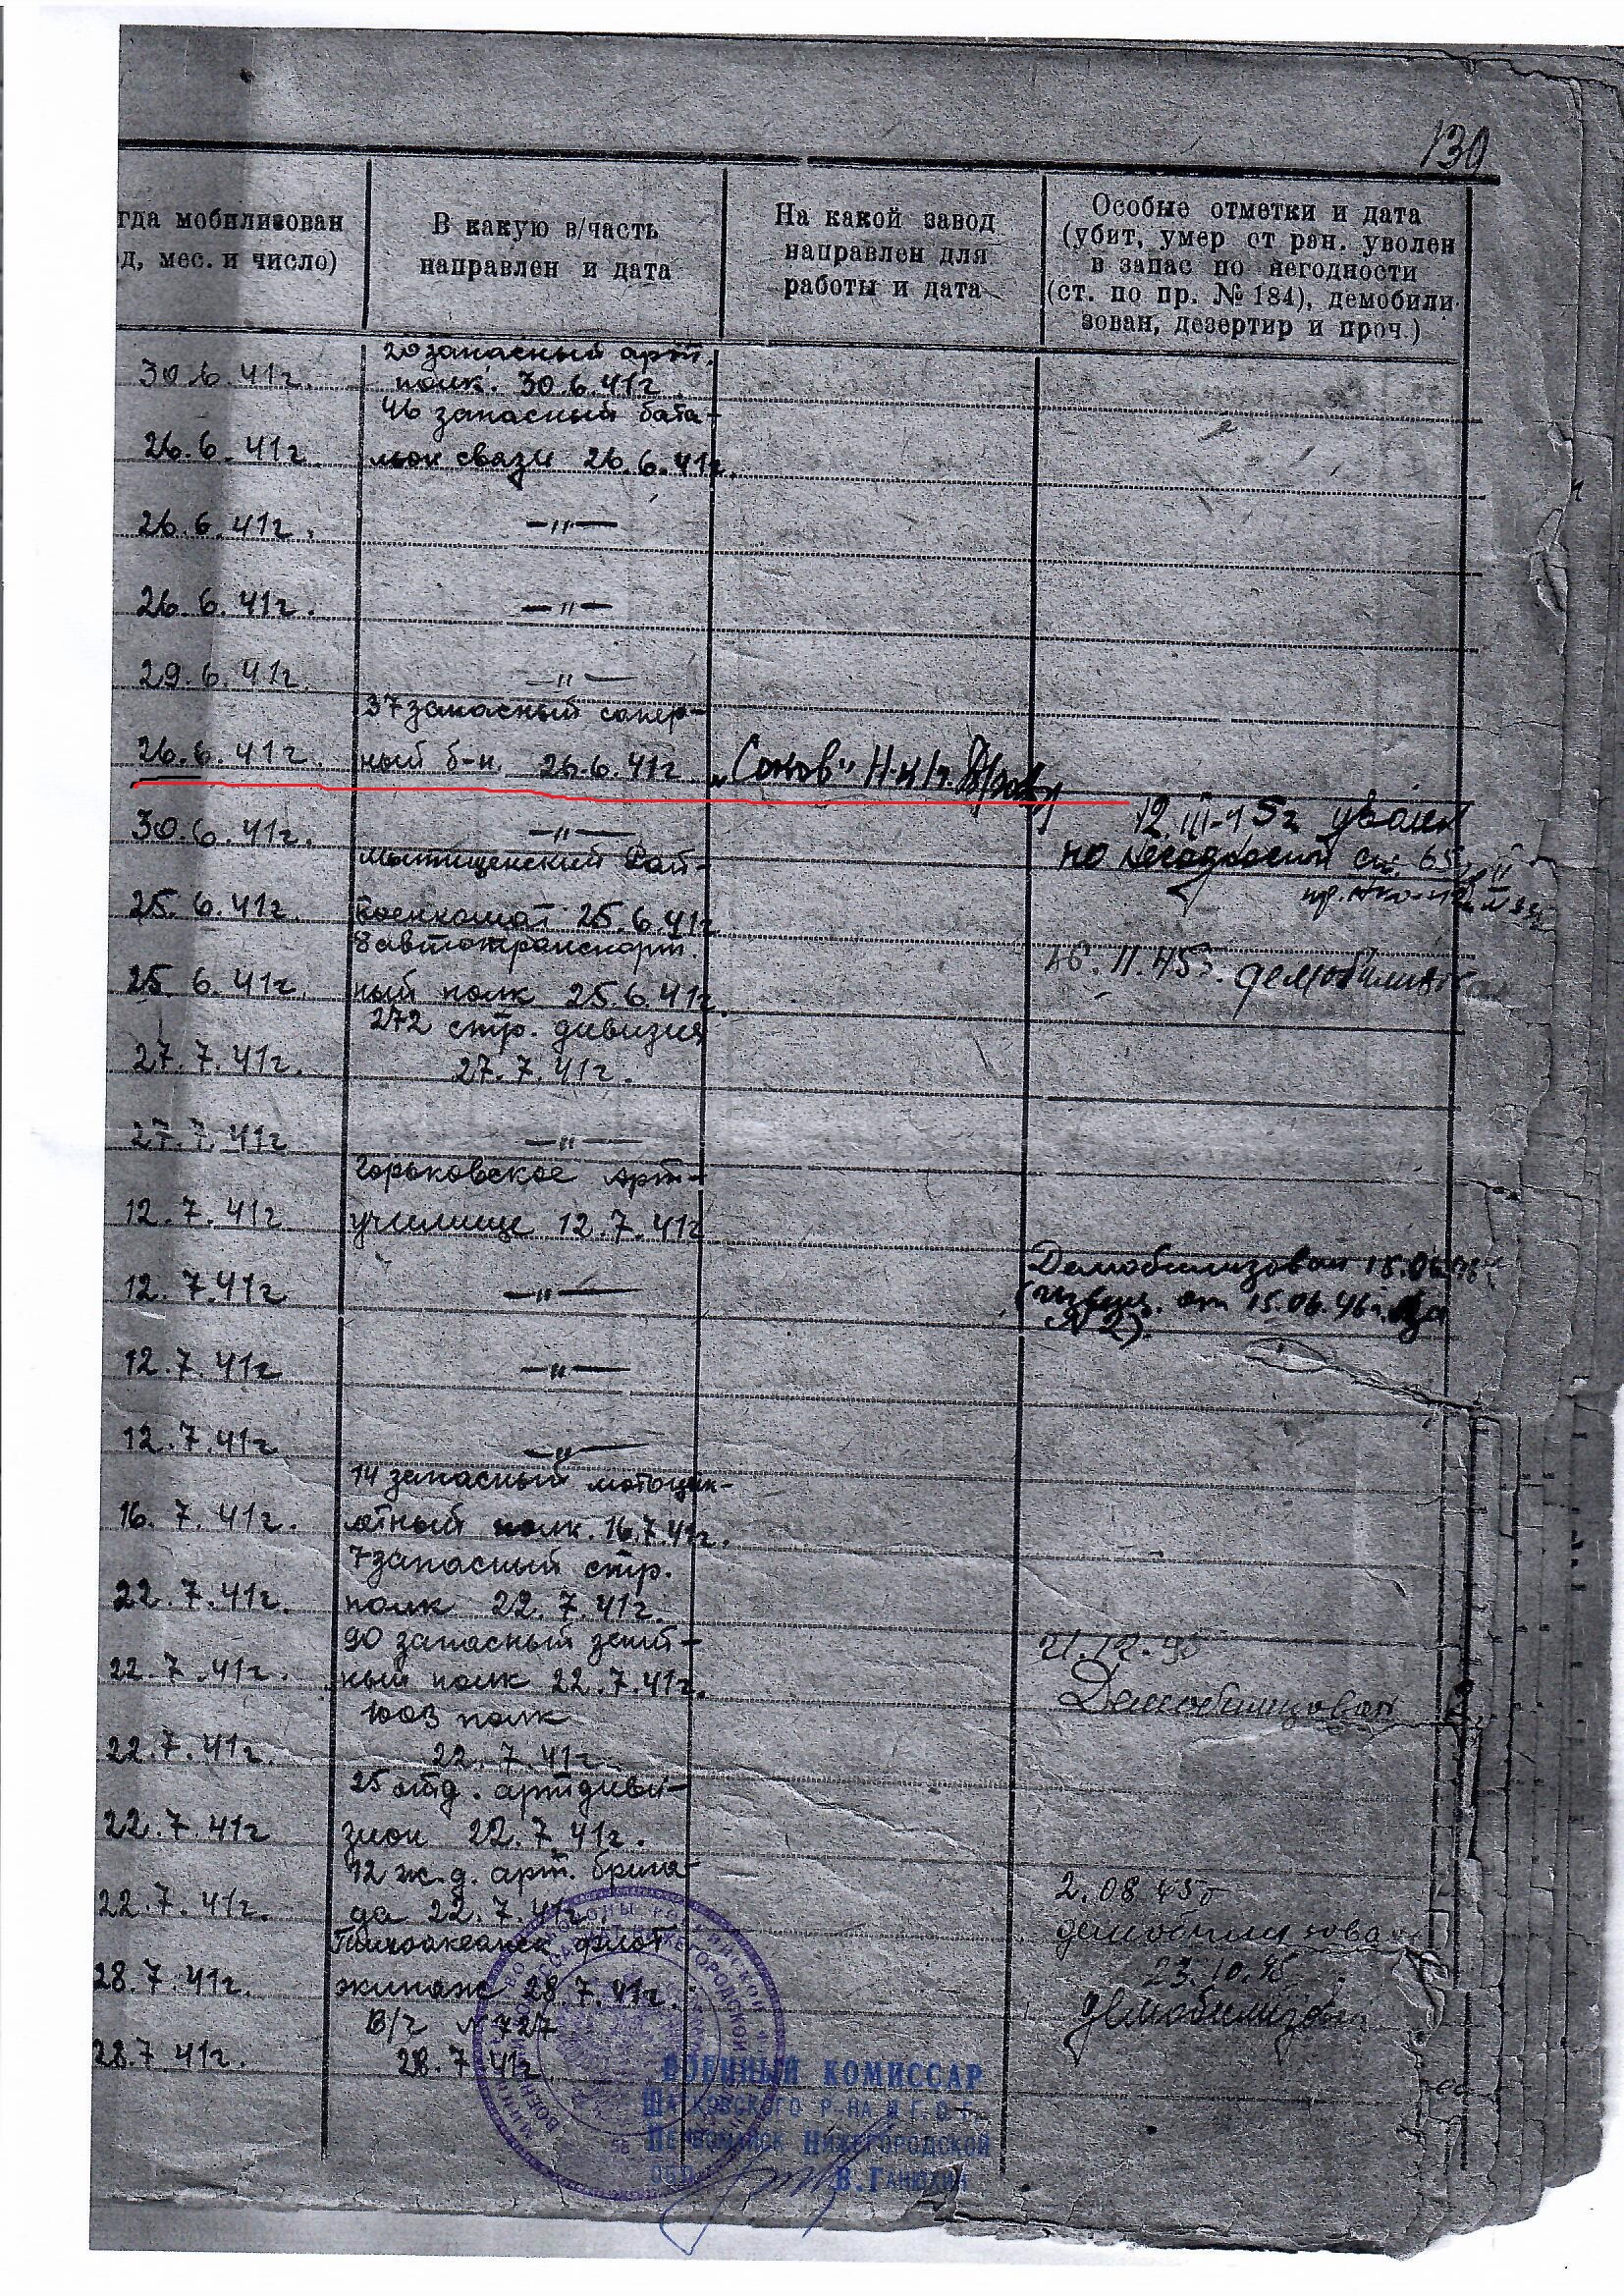 130
гда мобилизован
д, мес. и число)
В какую в/часть
направлен и дата
На какой завод
направлен для
работы и дата
Особые отметки и дата
(убит, умер от ран. уволен
в запас по негодности
(ст. по пр. № 184), демобили
зован, дезертир и проч.)
20 запасный арт.
30.6.41г. полк. 30.6.41г
46 запасный бата-
26.6.41г. льон связи 26.6.41г.
26.6.41г. —"—
26.6.41г. —"—
29.6.41г. —"—
37 запасный сапер-
26.6.41г. ный б-н. 26.6.41г
30.6.41г. —"— 12.III-45г уволен
по негодности ст. 65
Мытищенский Рай-
25.6.41г. военкомат 25.6.41г
8 автотранспорт.
25.6.41г. ный полк 25.6.41г. 16.11.45г. демобилизован
272 стр. дивизия
27.7.41г. 27.7.41г.
27.7.41г —"—
Горьковское арт-
12.7.41г училище 12.7.41г
12.7.41г —"— Демобилизован 15.06.46г
от 15.06.46г.
№ 2).
12.7.41г —"—
12.7.41г —"—
14 запасный мотоцик-
16.7.41г. летный полк. 16.7.41г.
7 запасный стр.
22.7.41г. полк 22.7.41г.
90 запасный зенит-
22.7.41г. ный полк 22.7.41г. Демобилизован
1003 полк
22.7.41г. 22.7.41г.
25 отд. артдиви-
22.7.41г зион 22.7.41г.
12 ж.д. арт. брига-
22.7.41г. да 22.7.41г. 2.08.45г
демобилизован
Тихоокеанск флот
28.7.41г. экипаж 28.7.41г. 23.10.45
демобилизован
В/ч № 727
28.7 41г. 28.7.41г
ВОЕННЫЙ КОМИССАР
ШАТКОВСКОГО Р-НА И Г.О.Г.
ПЕРВОМАЙСК НИЖЕГОРОДСКОЙ
ОБЛ.